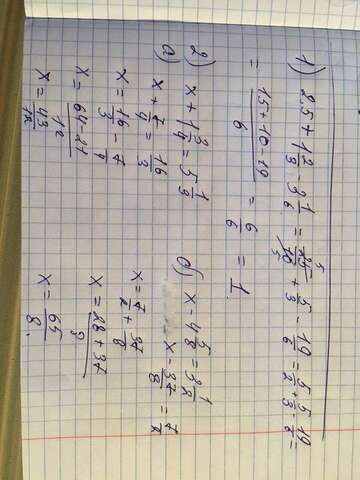 1) 2,5 + 1 2/3 - 3 1/6 = 25/10 + 5/3 - 19/6 = 5/2 + 5/3 - 19/6 =
= (15 + 10 - 19)/6 = 6/6 = 1.
2)
а) x + 1 3/4 = 5 1/3
x + 7/4 = 16/3
x = 16/3 - 7/4
x = (64 - 21)/12
x = 43/12
б) x - 4 5/8 = 3 1/2
x - 37/8 = 7/2
x = 7/2 + 37/8
x = (28 + 37)/8
x = 65/8.